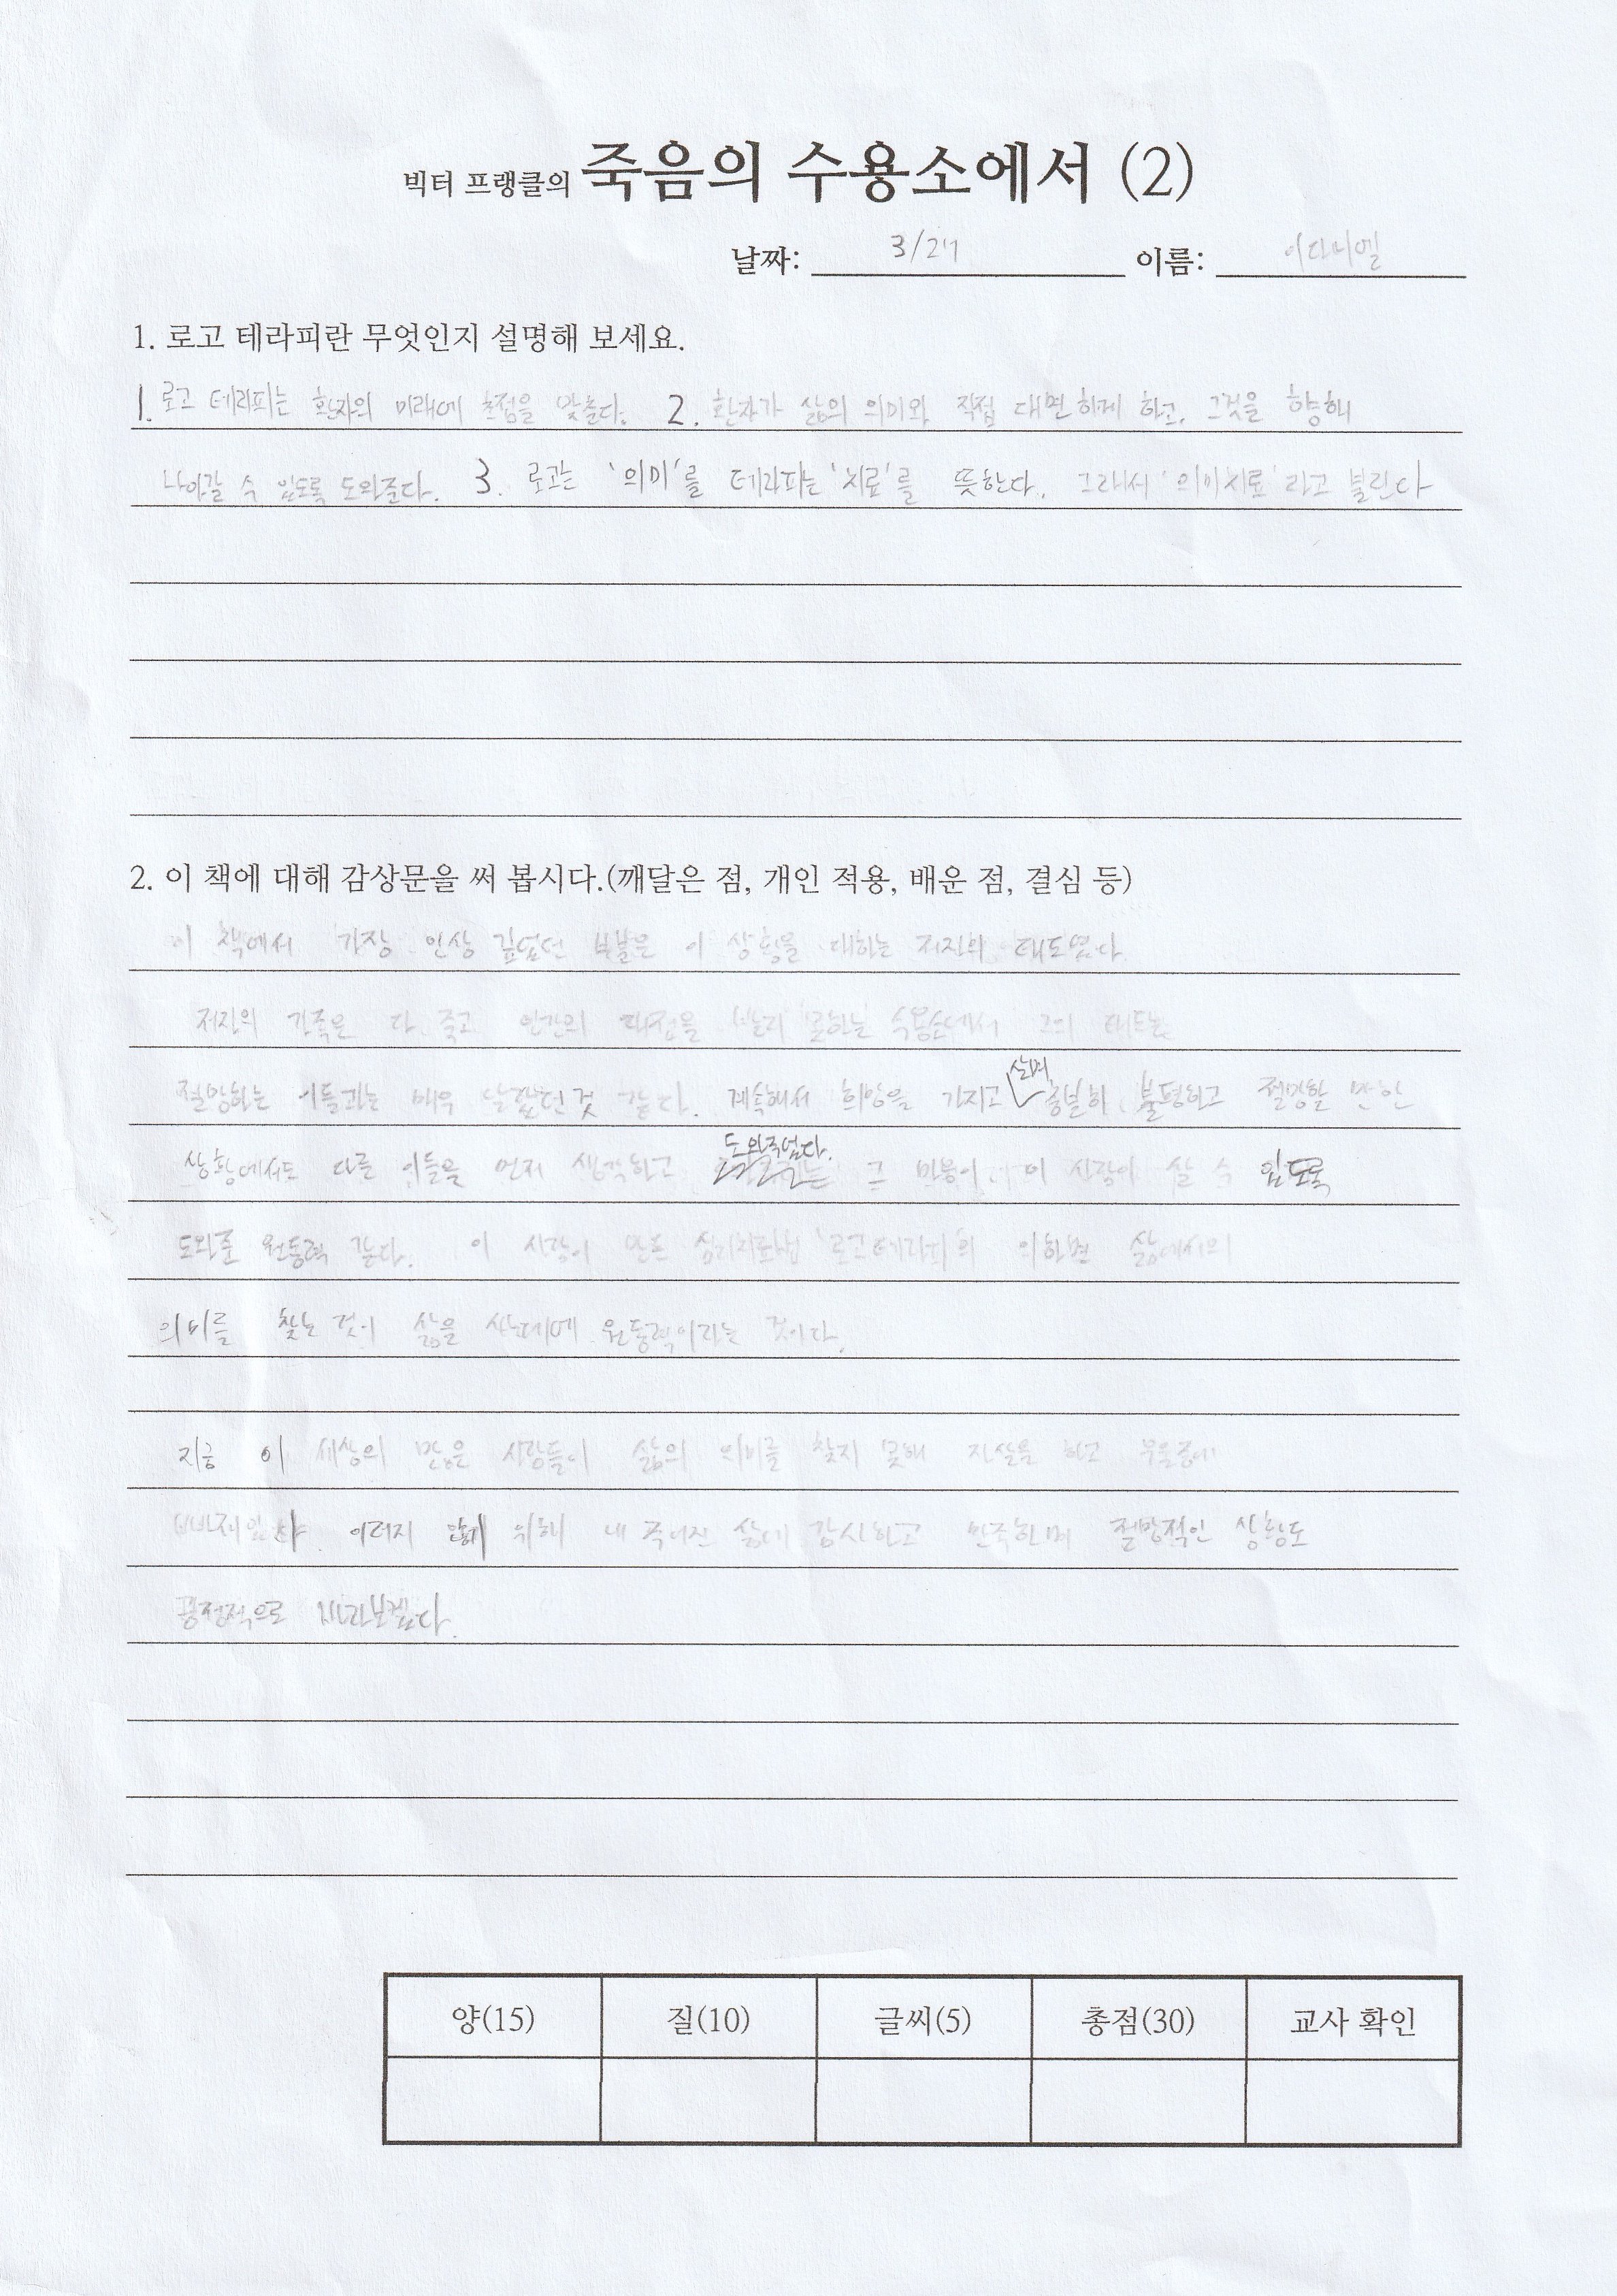 빅터 프랭클의 죽음의 수용소에서 (2)
날짜: 3/27 이름: 이다니엘
1. 로고 테라피란 무엇인지 설명해 보세요.
1. 로고 테라피는 환자의 미래에 초점을 맞춘다. 2. 환자가 삶의 의미와 직접 대면하게 하고, 그것을 향해
나아갈 수 있도록 도와준다. 3. 로고는 '의미'를 테라피는 '치료'를 뜻한다. 그래서 '의미치료'라고 불린다
2. 이 책에 대해 감상문을 써 봅시다.(깨달은 점, 개인 적용, 배운 점, 결심 등)
이 책에서 가장 인상 깊었던 부분은 이 상황을 대하는 저자의 태도였다
저자의 가족은 다 죽고 인간의 대접을 받지 못하는 수용소에서 그의 태도는
절망하는 이들과는 매우 달랐던 것 같다. 계속해서 희망을 가지고 살며 충분히 불평하고 절망할 만한
상황에서도 다른 이들을 먼저 생각하고 도와주었다. 그 마음이 이 사람이 살 수 있도록
도와준 원동력 같다. 이 사람이 만든 심리치료법 '로고테라피'의 의하면 삶에서의
의미를 찾는 것이 삶을 사는데에 원동력이라는 것이다.
지금 이 세상의 많은 사람들이 삶의 의미를 찾지 못해 자살을 하고 우울증에
이러지 않기 위해 내 주어진 삶에 감사하고 만족하며 절망적인 상황도
긍정적으로 바라보겠다.
양(15) 질(10) 글씨(5) 총점(30) 교사 확인